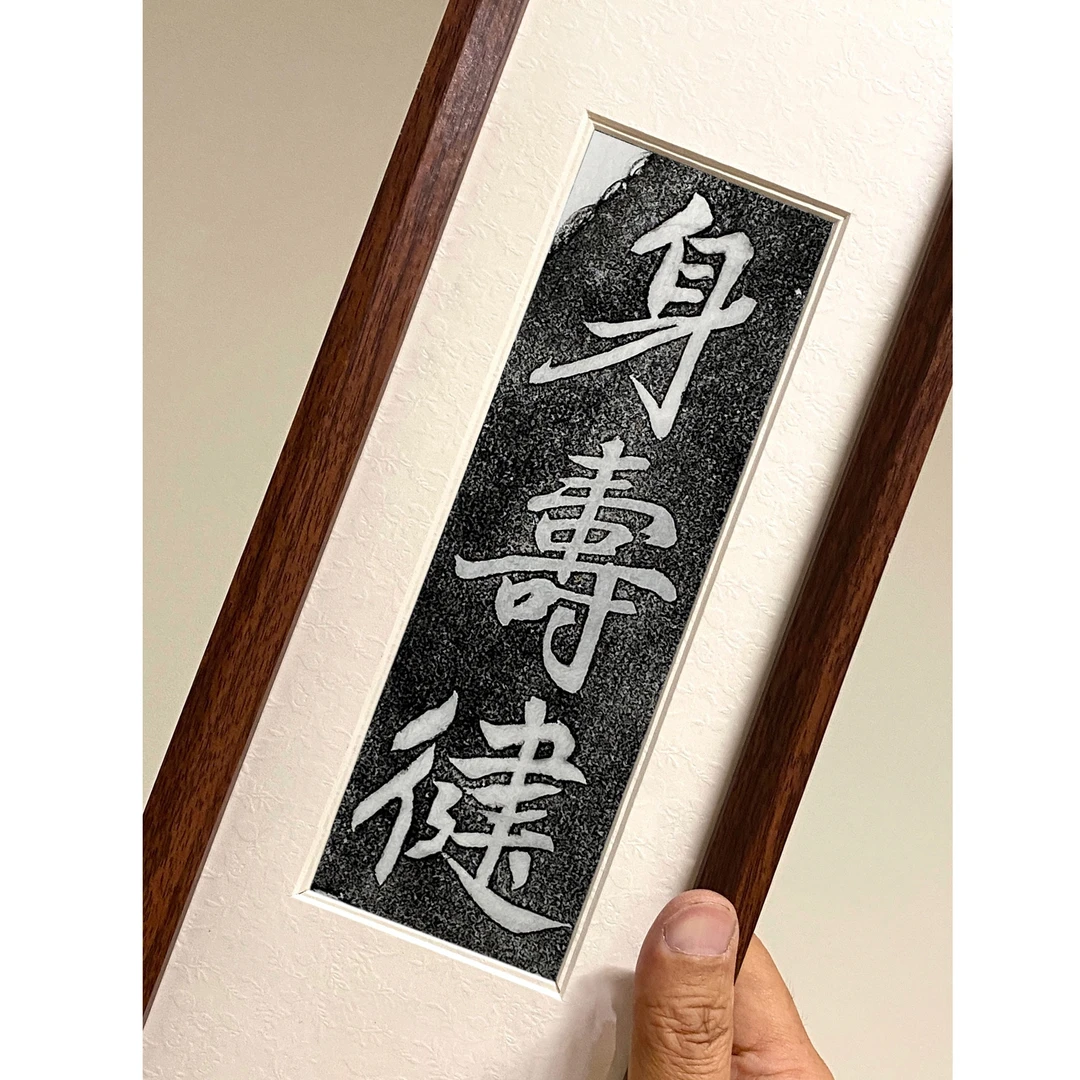 身壽健